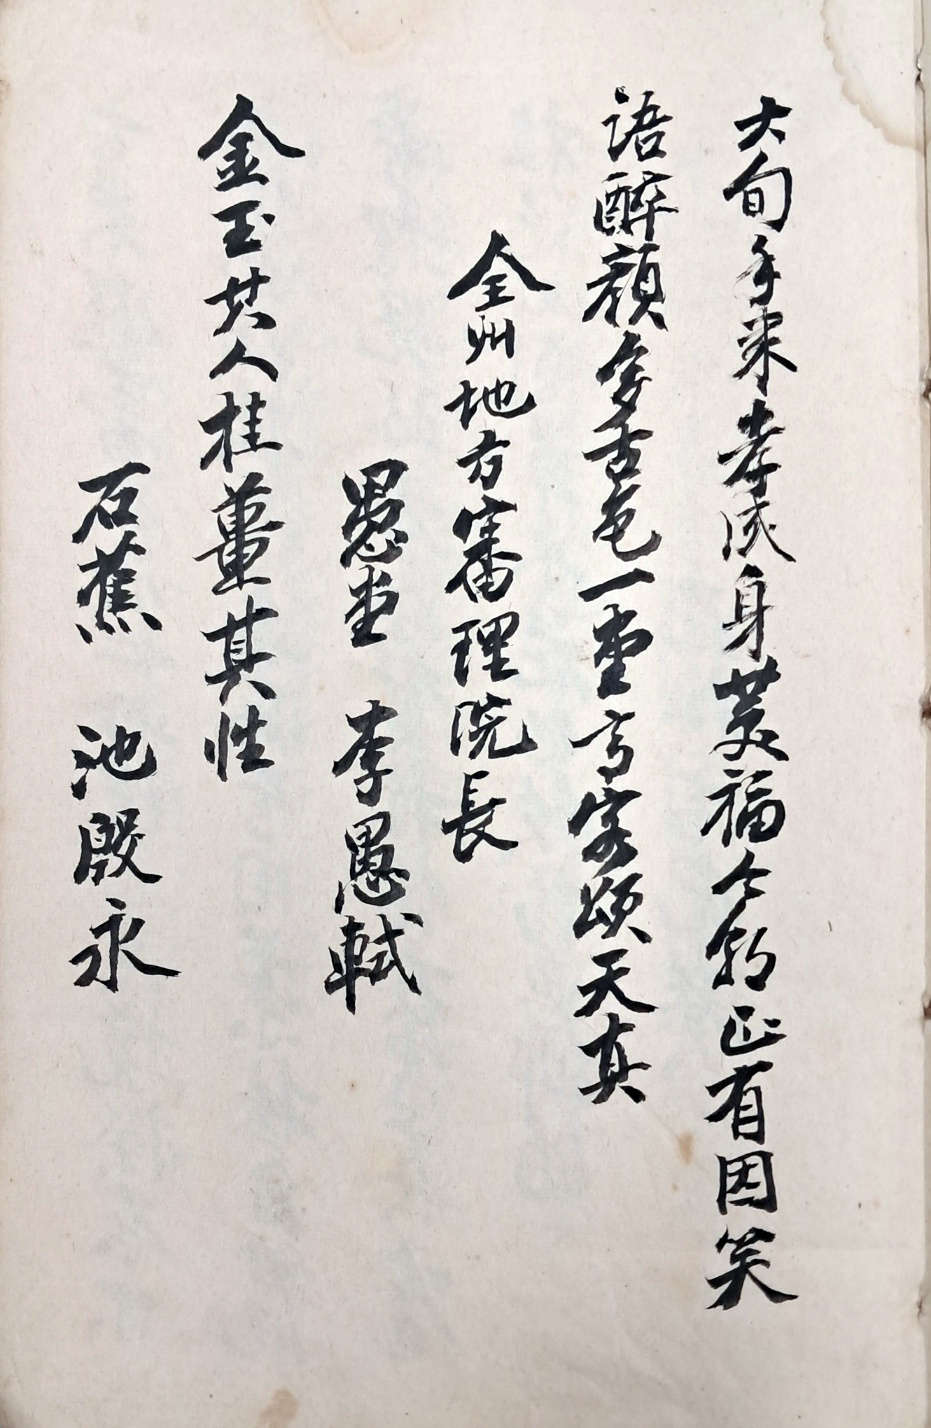 大旬年來孝成身美福今朝正有因笑
語醉顏多喜色一堂高客頌天真
全州地方審理院長
愚堂 李愚軾
金玉其人桂薑其性
石蕉 池殷永